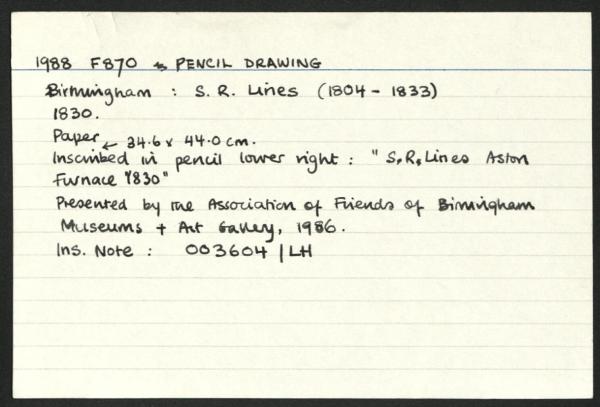 1988 F870 PENCIL DRAWING
Birmingham : S. R. Lines (1804 - 1833)
1830.
Paper ← 34.6 x 44.0 cm.
Inscribed in pencil lower right : "S.R. Lines Aston
Furnace 1830"
Presented by the Association of Friends of Birmingham
Museums + Art Gallery, 1986.
Ins. Note : 003604 / LH